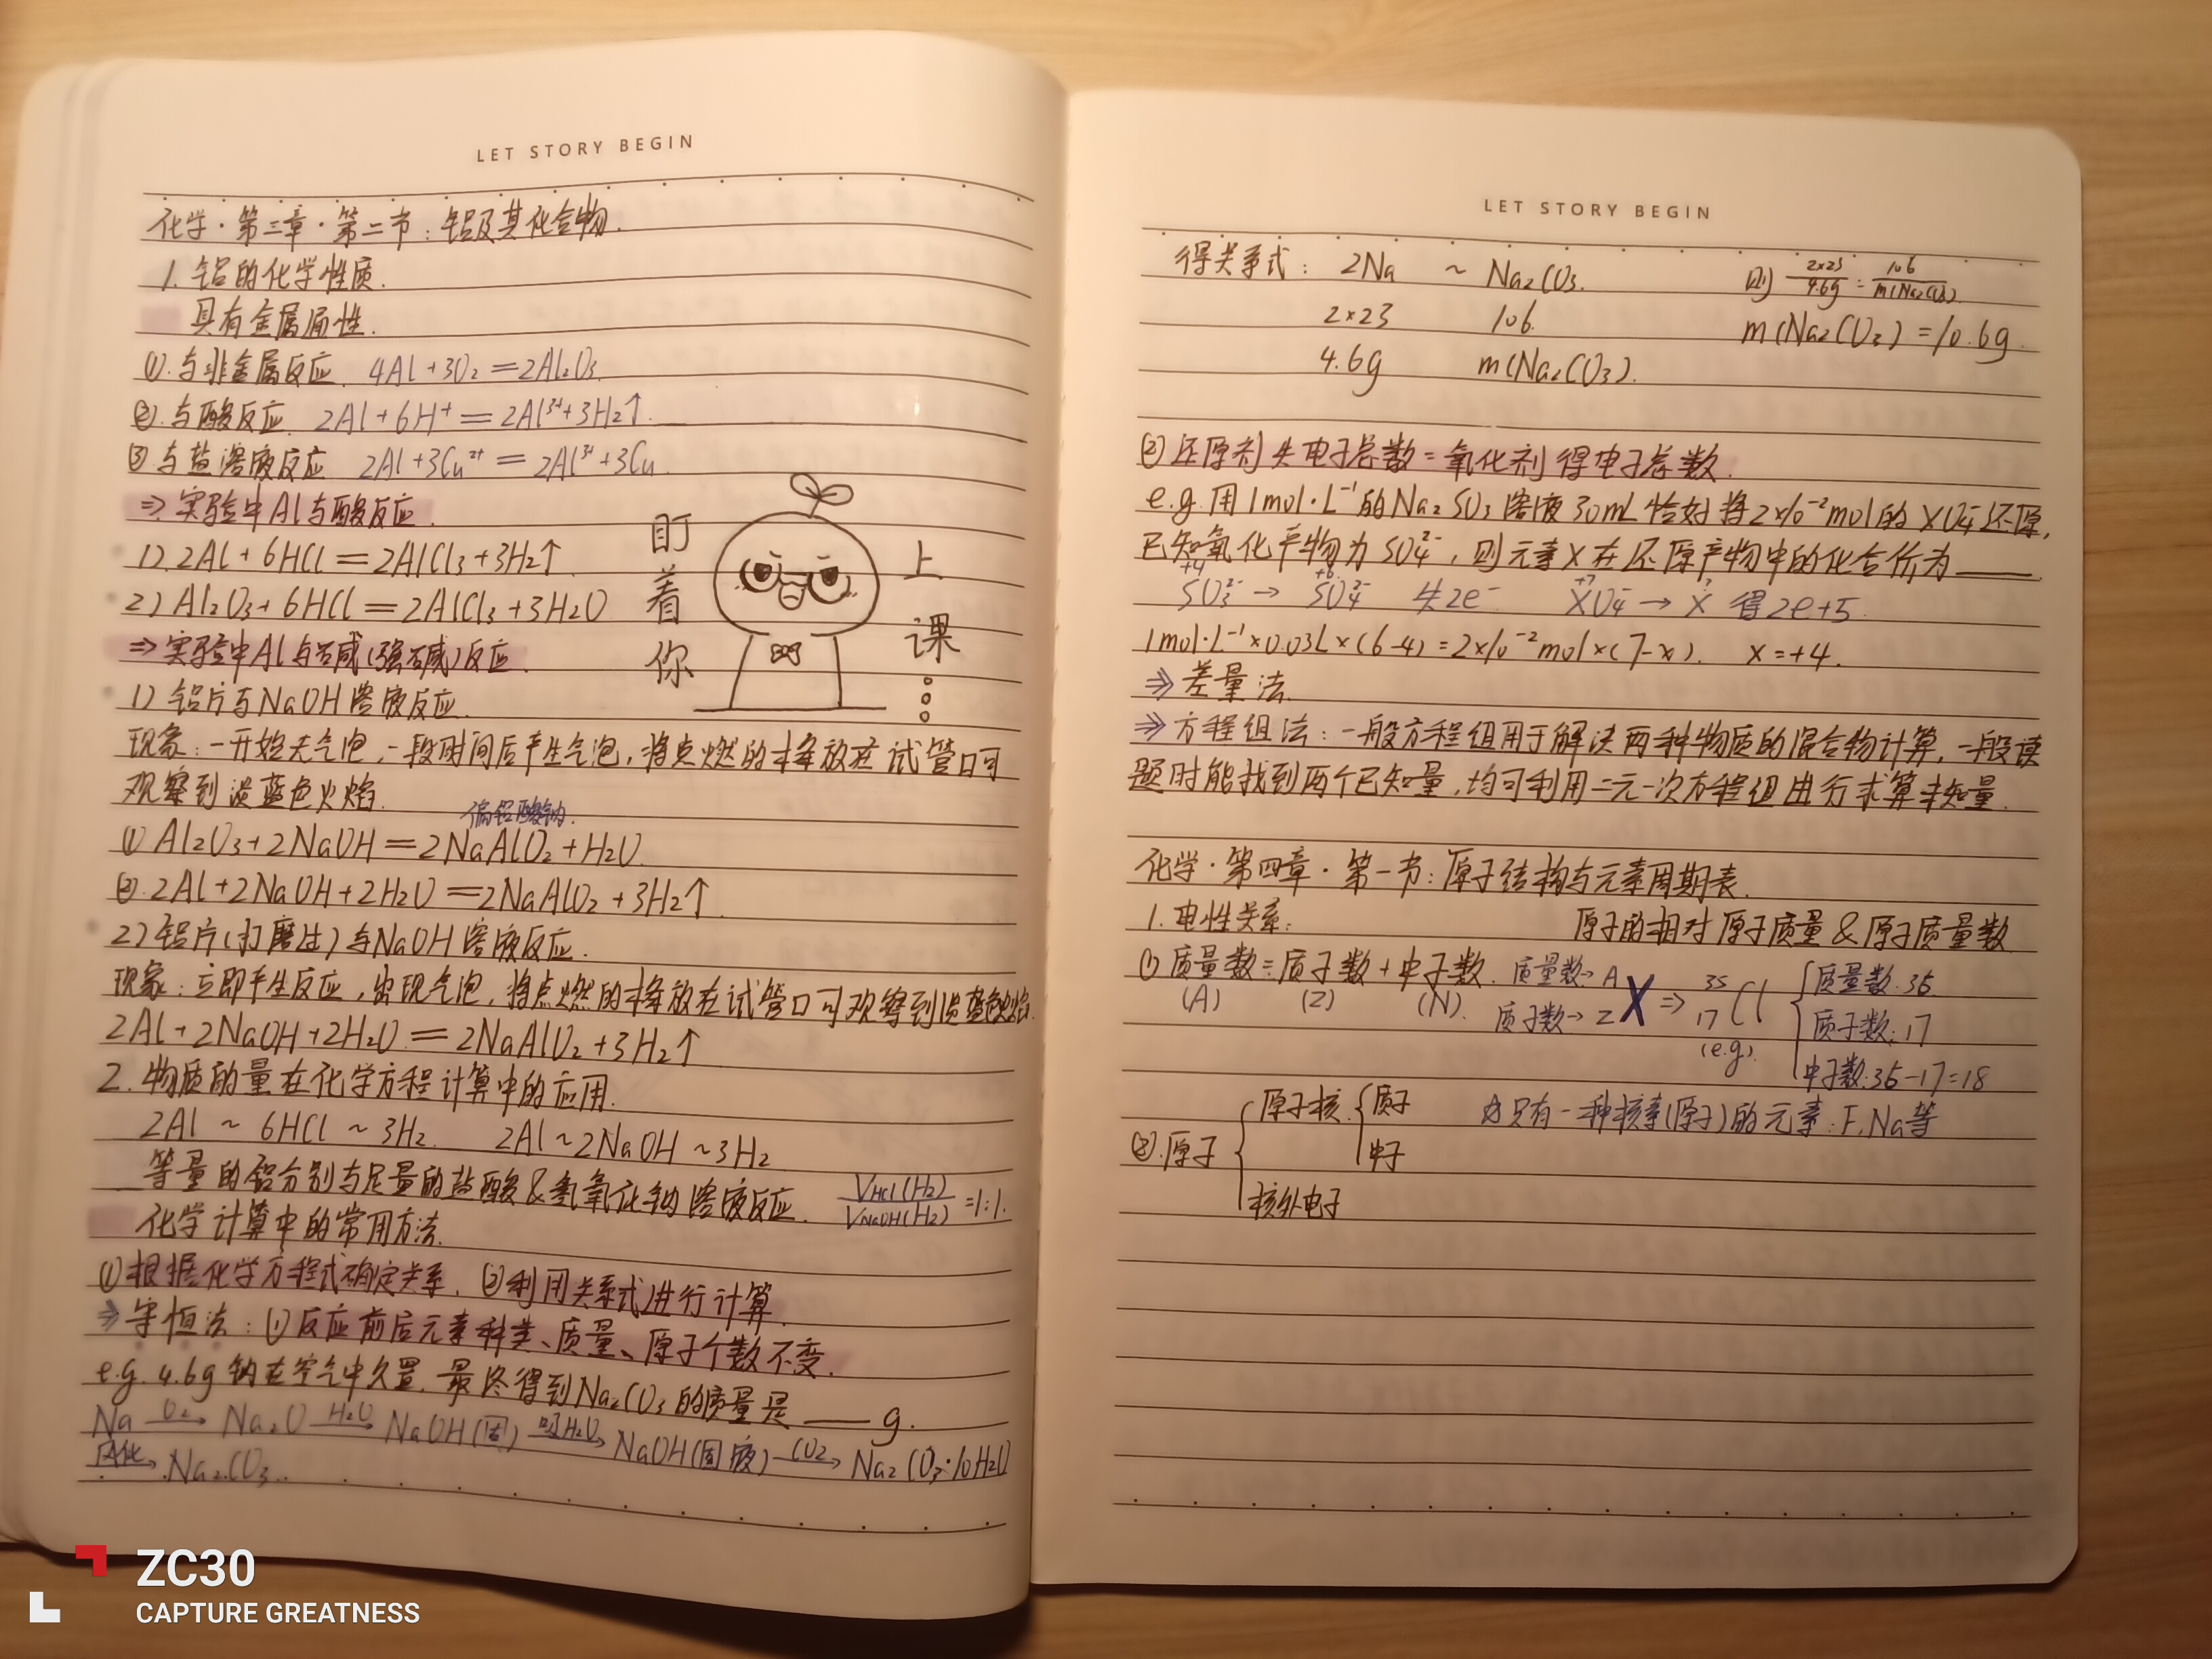 LET STORY BEGIN
化学·第三章·第二节:铝及其化合物.
1.铝的化学性质.
具有金属通性.
①.与非金属反应. 4Al+3O₂=2Al₂O₃
②.与酸反应. 2Al+6H⁺=2Al³⁺+3H₂↑.
③与盐溶液反应 2Al+3Cu²⁺=2Al³⁺+3Cu
⇒实验中Al与酸反应.
1).2Al+6HCl=2AlCl₃+3H₂↑.
2)Al₂O₃+6HCl=2AlCl₃+3H₂O
⇒实验中Al与碱(强碱)反应.
盯着你
上课。。。
1)铝片与NaOH溶液反应.
现象:一开始无气泡,一段时间后产生气泡,将点燃的木棒放在试管口可
观察到淡蓝色火焰.
偏铝酸钠.
①Al₂O₃+2NaOH=2NaAlO₂+H₂O.
②.2Al+2NaOH+2H₂O=2NaAlO₂+3H₂↑.
2)铝片(打磨过)与NaOH溶液反应.
现象:立即产生反应,出现气泡,将点燃的木棒放在试管口可观察到淡蓝色火焰.
2Al+2NaOH+2H₂O=2NaAlO₂+3H₂↑
2.物质的量在化学方程计算中的应用.
2Al~6HCl~3H₂. 2Al~2NaOH~3H₂
等量的铝分别与足量的盐酸&氢氧化钠溶液反应. V_HCl(H₂)/V_NaOH(H₂)=1:1.
化学计算中的常用方法.
①根据化学方程式确定关系.②利用关系式进行计算.
⇒守恒法:①反应前后元素种类、质量、原子个数不变.
e.g. 4.6g钠在空气中久置,最终得到Na₂CO₃的质量是____g.
Na —O₂→ Na₂O —H₂O→ NaOH(固) —吸H₂O→ NaOH(固液) —CO₂→ Na₂CO₃·10H₂O
风化→ Na₂CO₃.
LET STORY BEGIN
得关系式: 2Na ~ Na₂CO₃. 则 2×23/4.6g=106/m(Na₂CO₃)
2×23 106. m(Na₂CO₃)=10.6g.
4.6g m(Na₂CO₃).
②还原剂失电子总数=氧化剂得电子总数.
e.g.用1mol·L⁻¹的Na₂SO₃溶液30mL恰好将2×10⁻²mol的XO₄⁻还原,
已知氧化产物为SO₄²⁻,则元素X在还原产物中的化合价为____.
+4 +6 +7 ?
SO₃²⁻→SO₄²⁻ 失2e⁻ XO₄⁻→X 得2e+5
1mol·L⁻¹×0.03L×(6-4)=2×10⁻²mol×(7-x). x=+4.
⇒差量法.
⇒方程组法:一般方程组用于解决两种物质的混合物计算,一般读
题时能找到两个已知量,均可利用二元一次方程组进行求算未知量.
化学·第四章·第一节:原子结构与元素周期表.
1.电性关系: 原子的相对原子质量&原子质量数
①质量数=质子数+中子数. 质量数→A X ⇒ 35 Cl {质量数:35.
(A) (Z) (N). 质子数→Z 17 质子数:17
(e.g) 中子数:35-17=18
②.原子{原子核{质子 只有一种核素(原子)的元素:F,Na等
中子
核外电子
ZC30
CAPTURE GREATNESS